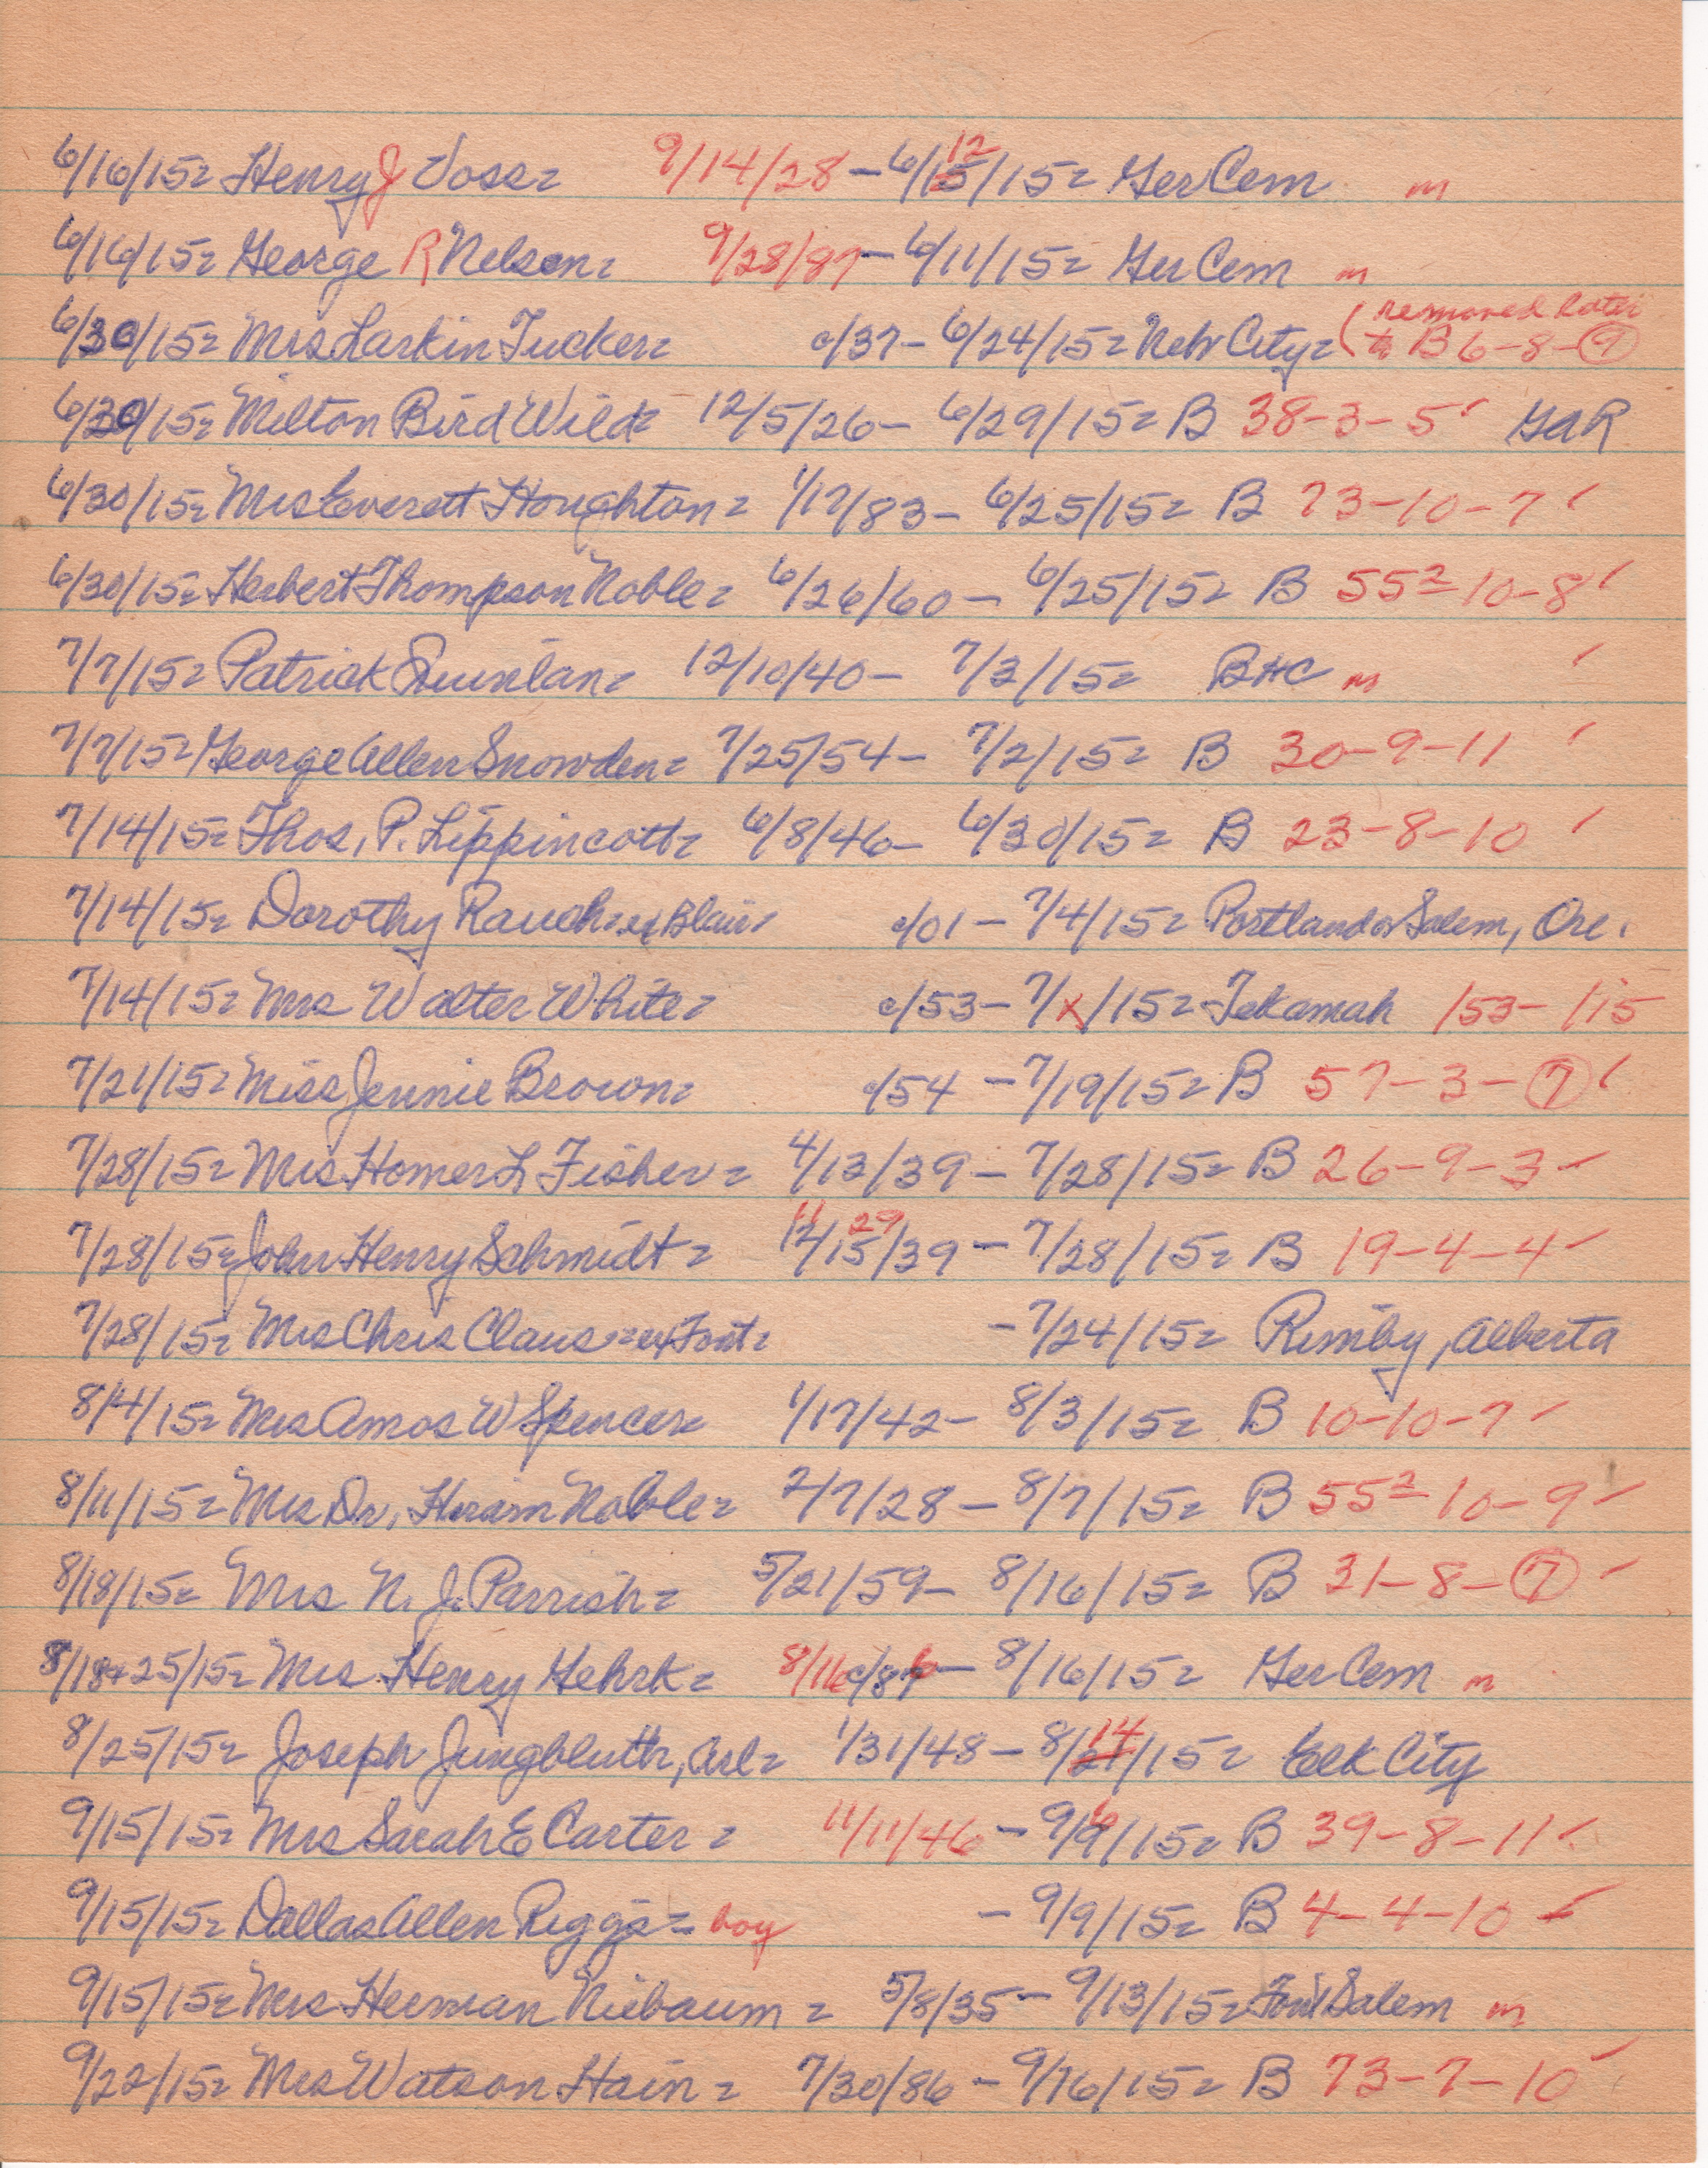 6/16/15= Henry J Voss= 9/14/28 - 6/15/15= Ger Cem m
12
6/16/15= George R Nelson= 9/28/87 - 6/11/15= Ger Cem m
6/30/15= Mrs Larkin Tucker= c/37 - 6/24/15= Nebr City= (removed later
to B 6-8-9
6/30/15= Milton Bird Wild= 12/5/26 - 6/29/15= B 38-3-5 ✓ GAR
6/30/15= Mrs Everett Houghton= 1/17/83 - 6/25/15= B 73-10-7 ✓
6/30/15= Herbert Thompson Noble= 6/26/60 - 6/25/15= B 55²-10-8 ✓
7/7/15= Patrick Quinlan= 12/10/40 - 7/3/15= BHC m ✓
7/7/15= George Allen Snowden= 7/25/54 - 7/2/15= B 30-9-11 ✓
7/14/15= Thos. P. Lippincott= 6/8/46 - 6/30/15= B 23-8-10 ✓
7/14/15= Dorothy Rauch= ex Blair= c/01 - 7/4/15= Portland or Salem, Ore.
7/14/15= Mrs Walter White= c/53 - 7/x/15= Tekamah /53- /15
7/21/15= Miss Jennie Brown= c/54 - 7/19/15= B 57-3-7 ✓
7/28/15= Mrs Homer L Fisher= 4/13/39 - 7/28/15= B 26-9-3 ✓
11 29
7/28/15= John Henry Schmidt= 12/15/39 - 7/28/15= B 19-4-4 ✓
7/28/15= Mrs Chris Claus= ex Font= - 7/24/15= Rimby, Alberta
8/4/15= Mrs Amos W Spencer= 1/17/42 - 8/3/15= B 10-10-7 ✓
8/11/15= Mrs Dr. Hiram Noble= 2/7/28 - 8/7/15= B 55²-10-9 ✓
8/18/15= Mrs N. J. Parrish= 5/21/59 - 8/16/15= B 31-8-7 ✓
8/18+25/15= Mrs Henry Gehrk= 8/16 c/86 - 8/16/15= Ger Cem m
14
8/25/15= Joseph Jungbluth, Arl= 1/31/48 - 8/21/15= Elk City
6
9/15/15= Mrs Sarah E Carter= 11/11/46 - 9/9/15= B 39-8-11 ✓
9/15/15= Dallas Allen Riggs= boy - 9/9/15= B 4-4-10 ✓
9/15/15= Mrs Herman Niebaum= 5/8/35 - 9/13/15= Font Salem m
9/22/15= Mrs Watson Hain= 7/30/86 - 9/16/15= B 73-7-10 ✓